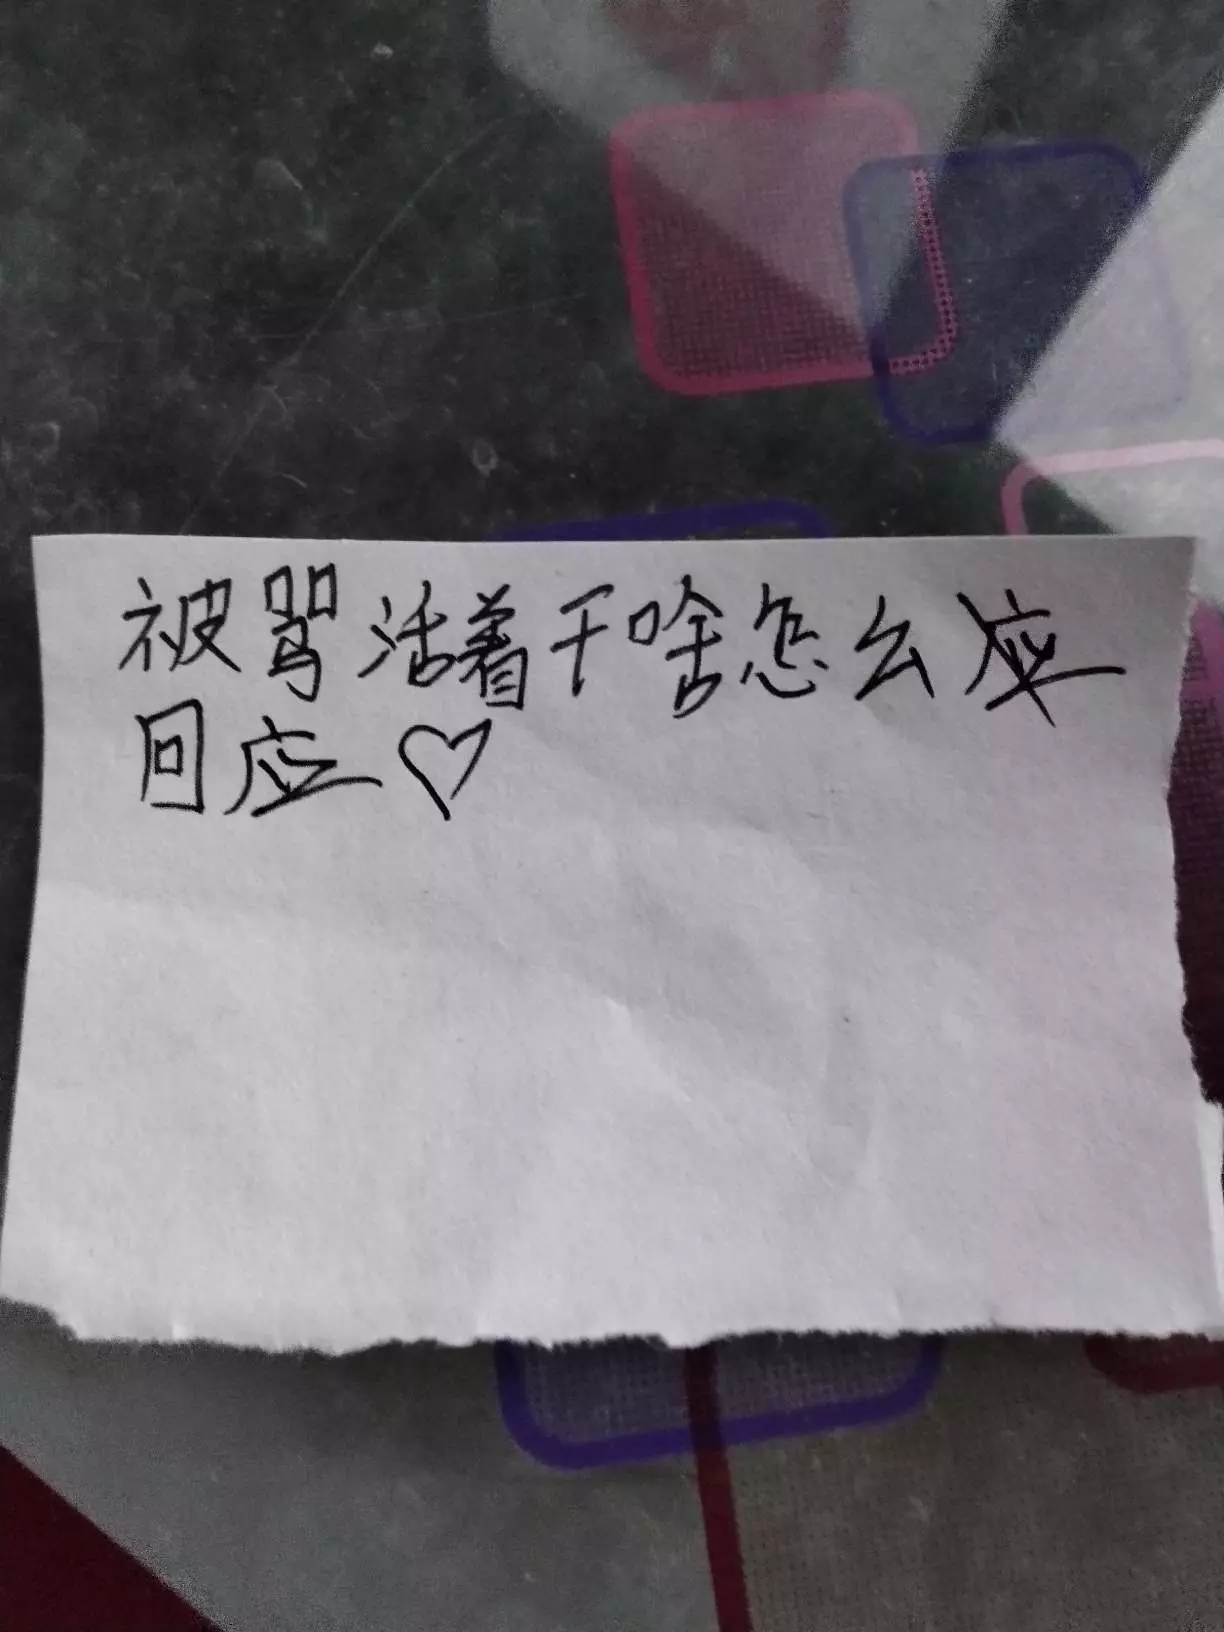 被骂活着干啥怎么
回应♡